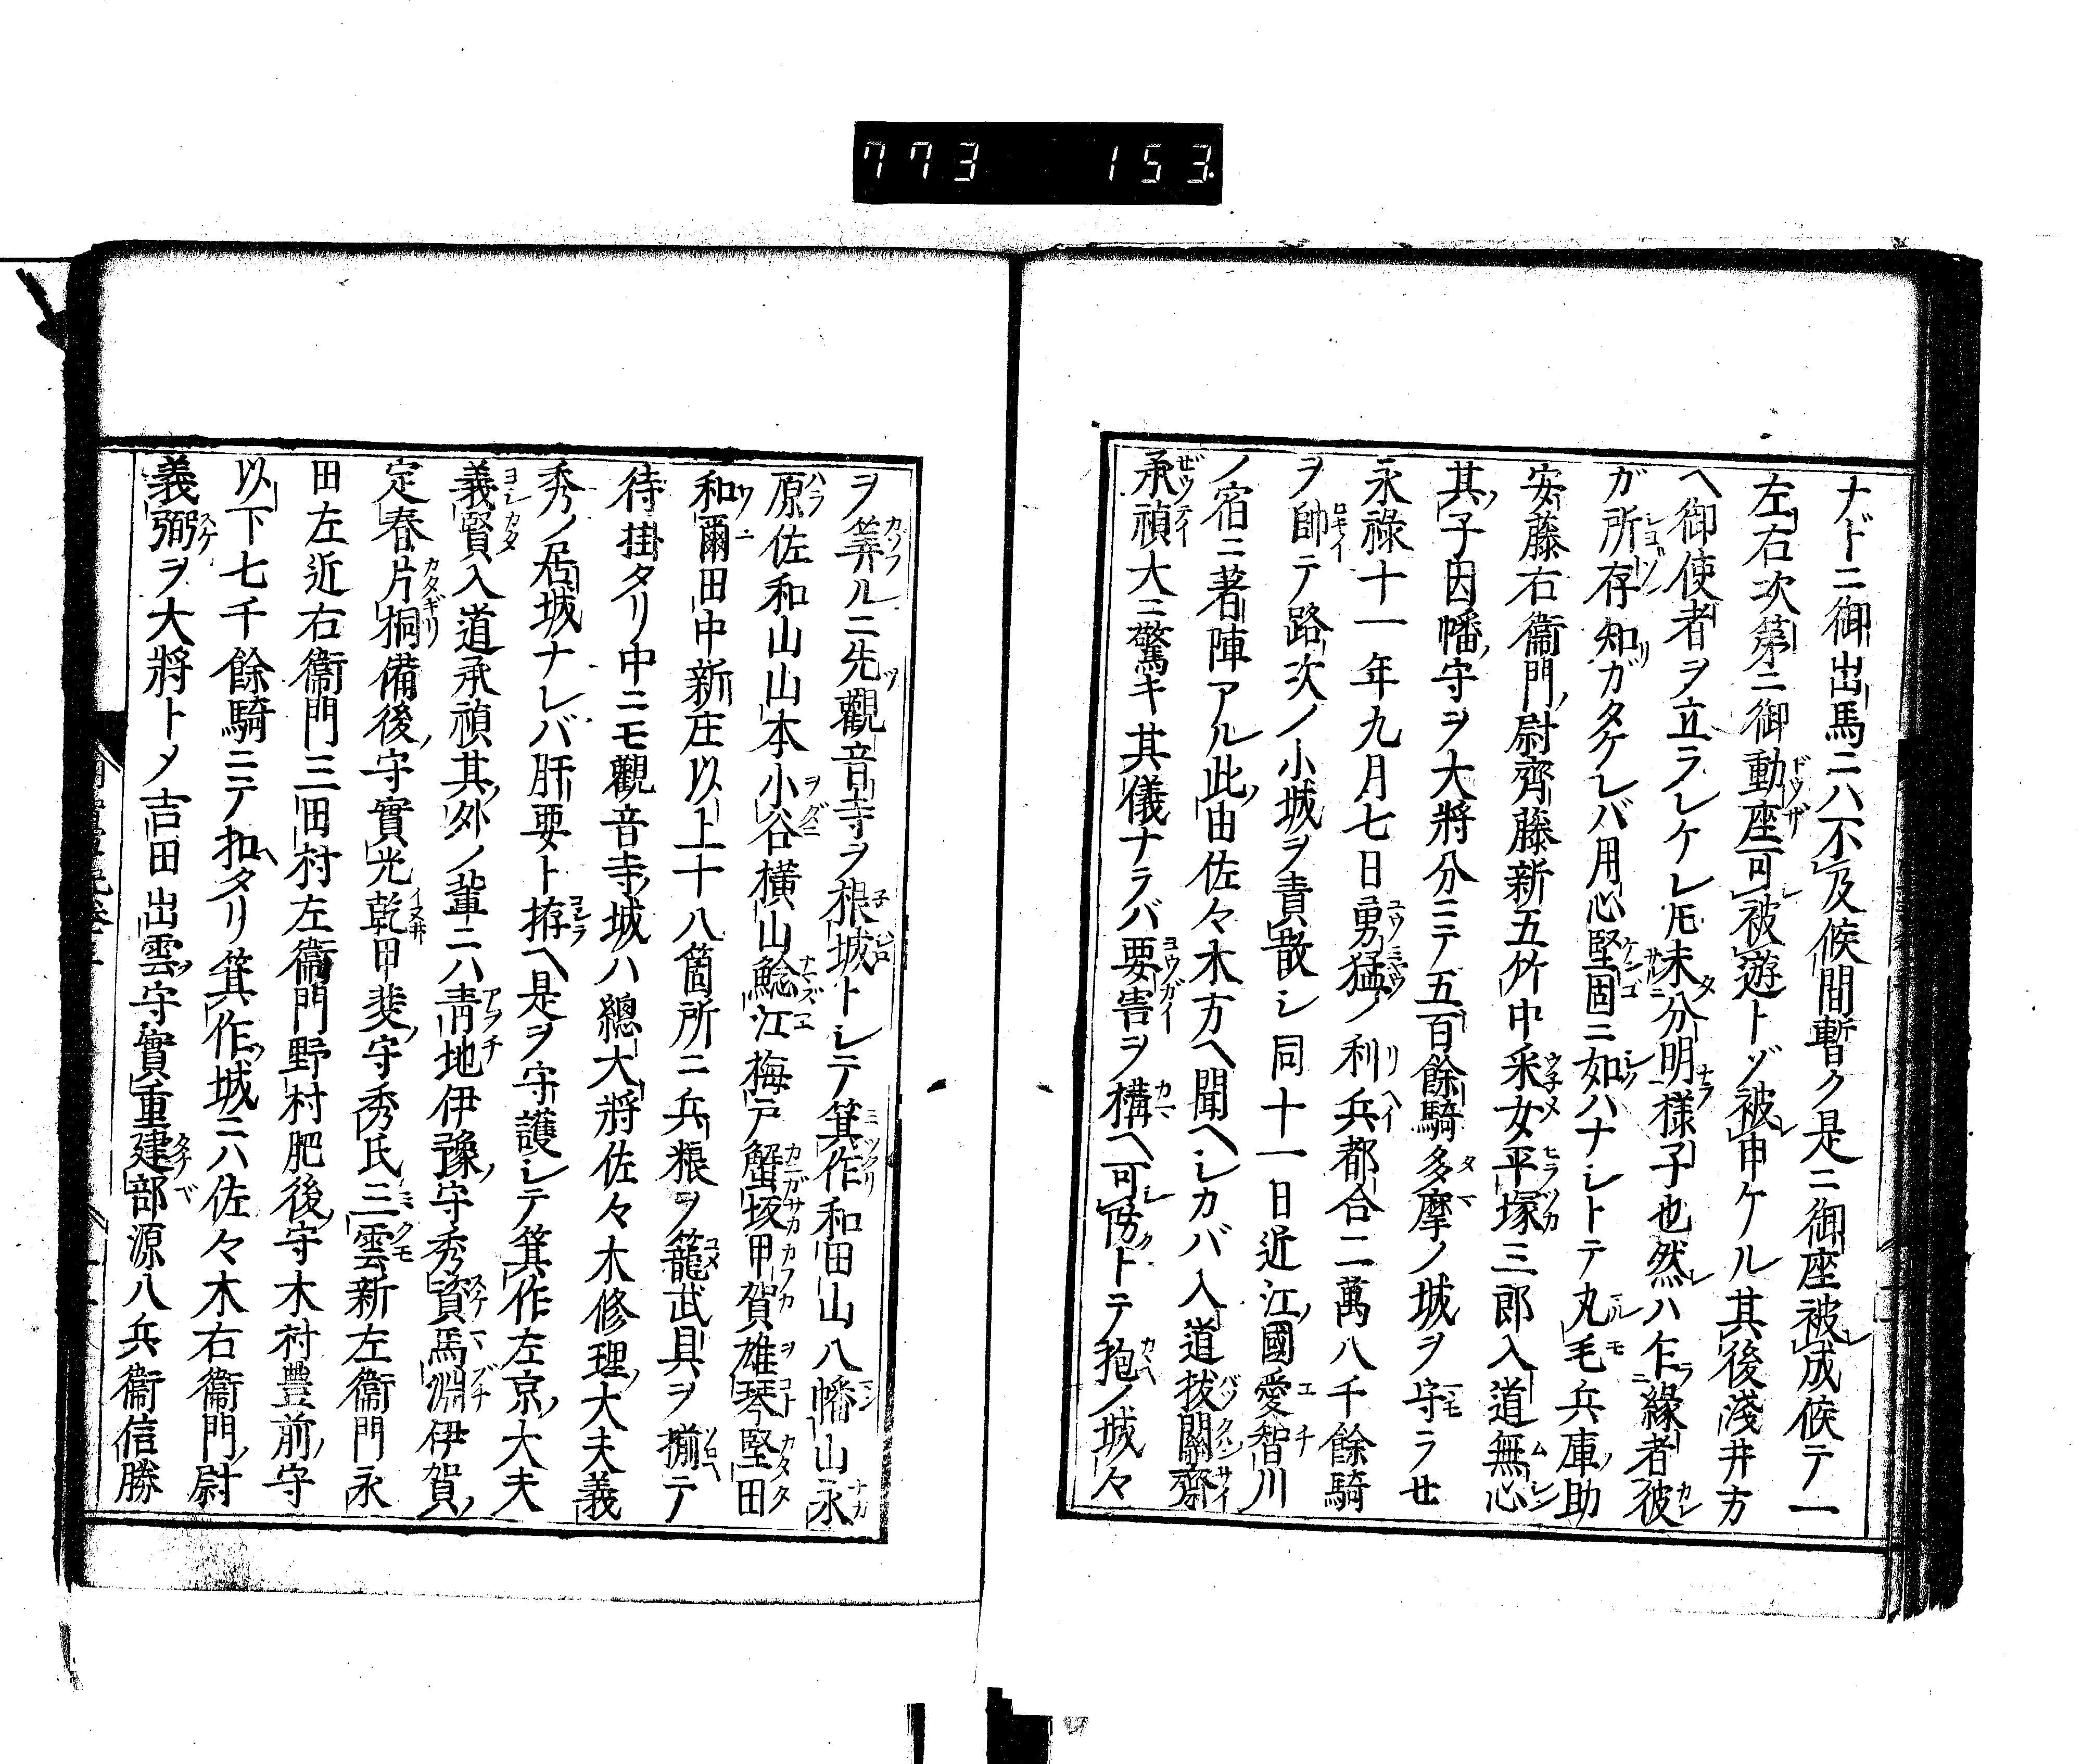 773 153
ナドニ御出馬ニハ不及候間暫ク是ニ御座被成候テ一
左右次第ニ御動座可被遊トゾ被申ケル其後淺井方
ヘ御使者ヲ立ラレケレ𪜈未分明様子也然ハ乍縁者彼
ガ所存知ガタケレバ用心堅固ニ如ハナシトテ丸毛兵庫助
安藤右衞門尉齊藤新五竹中采女平塚三郎入道無心
其子因幡守ヲ大將分ニテ五百餘騎多摩ノ城ヲ守ラせ
永祿十一年九月七日勇猛ノ利兵都合二萬八千餘騎
ヲ帥テ路次ノ小城ヲ責散シ同十一日近江國愛智川
ノ宿ニ著陣アル此由佐々木方ヘ聞ヘシカバ入道抜關齋
承禎大ニ驚キ其儀ナラバ要害ヲ構ヘ可防トテ抱ノ城々
ヲ筭ルニ先觀音寺ヲ根城トシテ箕作和田山八幡山永
原佐和山山本小谷横山鯰江梅戸蟹坂甲賀雄琴堅田
和爾田中新庄以上十八箇所ニ兵粮ヲ籠武具ヲ揃テ
待掛タリ中ニモ觀音寺城ハ總大將佐々木修理大夫義
秀ノ居城ナレバ肝要ト拵ヘ是ヲ守護シテ箕作左京大夫
義賢入道承禎其外ノ輩ニハ靑地伊豫守秀資馬淵伊賀
定春片桐備後守實光乾甲斐守秀氏三雲新左衞門永
田左近右衞門三田村左衞門野村肥後守木村豊前守
以下七千餘騎ニテ扣タリ箕作城ニハ佐々木右衞門尉
義弼ヲ大將トメ吉田出雲守實重建部源八兵衞信勝